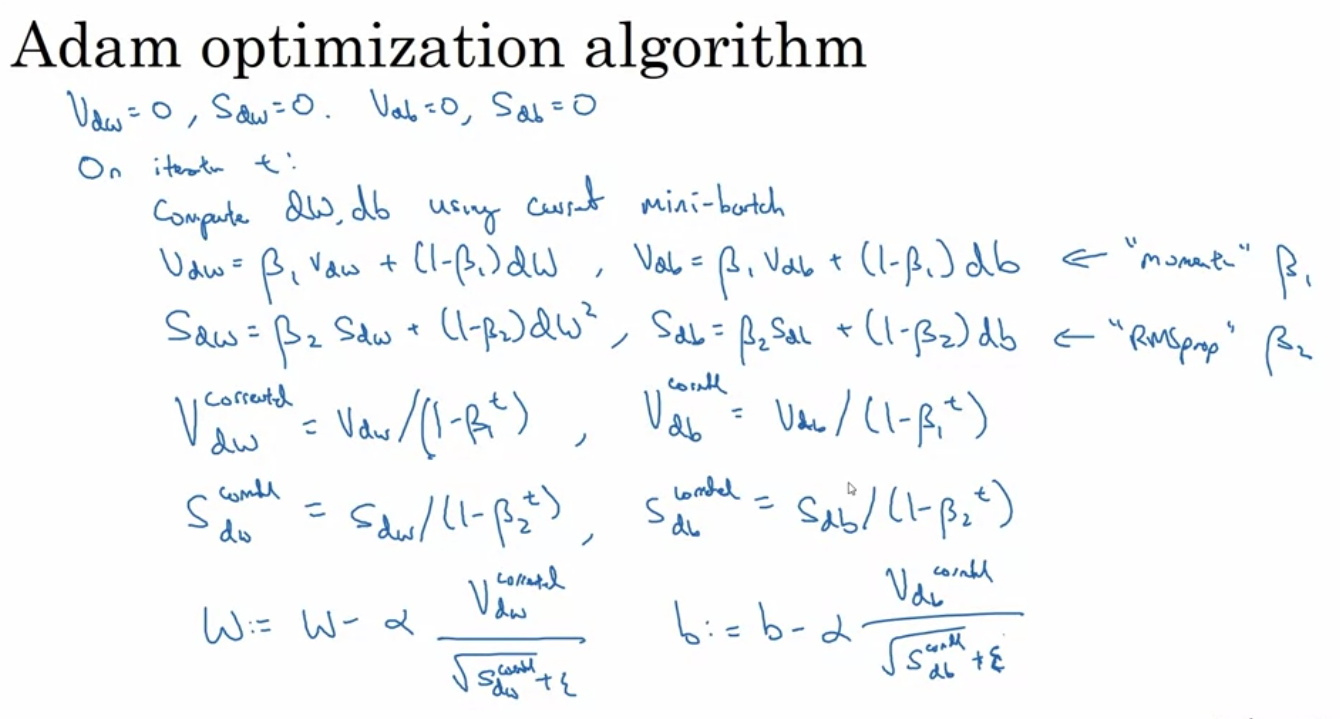 Adam optimization algorithm
V_dw = 0, S_dw = 0. V_db = 0, S_db = 0
On iteratn t:
Compute dW, db using current mini-batch
V_dw = β₁ V_dw + (1-β₁) dW , V_db = β₁ V_db + (1-β₁) db ← "moment" β₁
S_dw = β₂ S_dw + (1-β₂) dW² , S_db = β₂ S_db + (1-β₂) db ← "RMSprop" β₂
V_dw^corrected = V_dw/(1-β₁^t) , V_db^corrected = V_db/(1-β₁^t)
S_dw^corrected = S_dw/(1-β₂^t) , S_db^corrected = S_db/(1-β₂^t)
W := W - α V_dw^corrected / (√S_dw^corrected + ε) b := b - α V_db^corrected / (√S_db^corrected + ε)